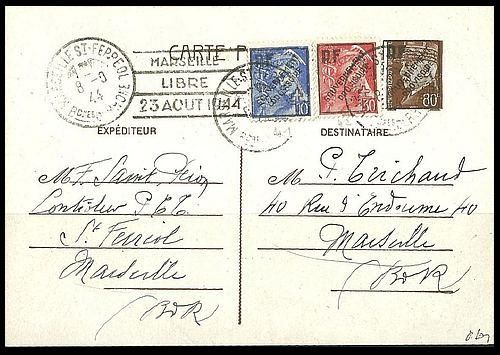 MARSEILLE ST-FERREOL
8-9
44
BCHES DU RHONE
CARTE P
MARSEILLE
LIBRE
23 AOUT 1944
RF
10
RF
30
80c
EXPÉDITEUR
DESTINATAIRE
M. F. Saint
Contrôleur P.T.T.
St Ferréol
Marseille
BdR
M P. Trichaud
40 Rue d'Endoume 40
Marseille
BdR